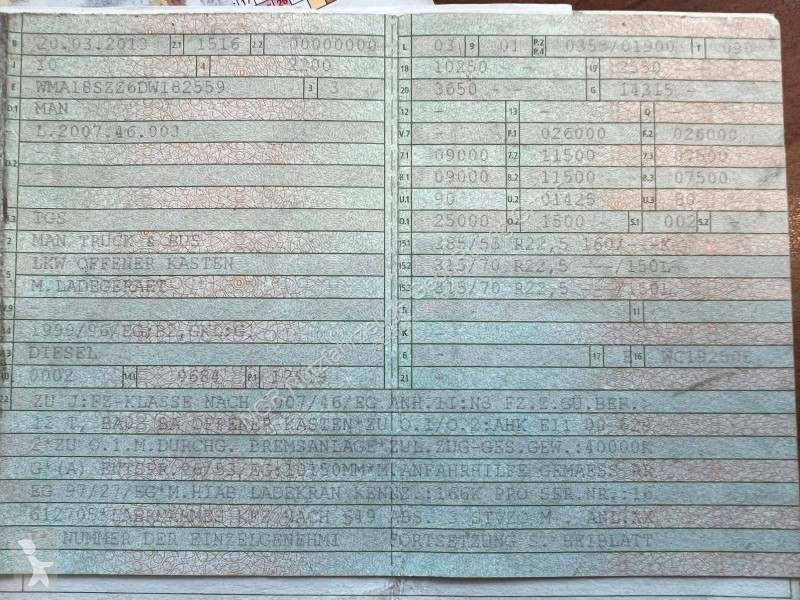 B 20.03.2013 2.1 1516 2.2 00000000
J 10 4 2200
E WMA18SZZ6DW182559 3 3
D.1 MAN
L.2007.46.003
D.2 -
-
TGS
2 MAN TRUCK & BUS
LKW OFFENER KASTEN
5 M.LADEGERAET
V.9 -
14
DIESEL
10 0002 14.1 9684 P.1
L 03 9 01 P.2 P.4 T 090
18 10250 - 19 2550
20 3650 - - - G 14315 -
12 - 13 - Q -
V.7 - F.1 026000 F.2 026000
7.1 09000 7.2 11500 7.3 07500
8.1 09000 8.2 11500 8.3 07500
U.1 90 U.2 01425 U.3 80
O.1 25000 O.2 1500 - S.1 002 S.2 -
15.1 385/55 R22,5 160/---K
15.2 315/70 R22,5 --/150L
15.3 315/70 R22,5 --/150L
R - 11
K -
6 - 17 E 16
21 -
22 ZU J:FZ-KLASSE NACH 2007/46/EG ANH.II:N3 FZ.Z.GÜ.BEF.>
12 T, BA OFFENER KASTEN*ZU O.1/O.2:AHK E11 00 629
2*ZU O.1.M.DURCHG. BREMSANLAGE*ZUL.ZUG-GES.GEW.:40000K
G*(A) ENTSPR.96/53/EG:10150MM*M.ANFAHRHILFE GEMAESS AR
EG 97/27/EG*M.HIAB LADEKRAN KENNZ.:166K PRO SER.NR.:16
KFZ NACH §19 ABS. 3 STVZO M. ANL.XX
NUMMER DER EINZELGENEHMI FORTSETZUNG S. BEIBLATT